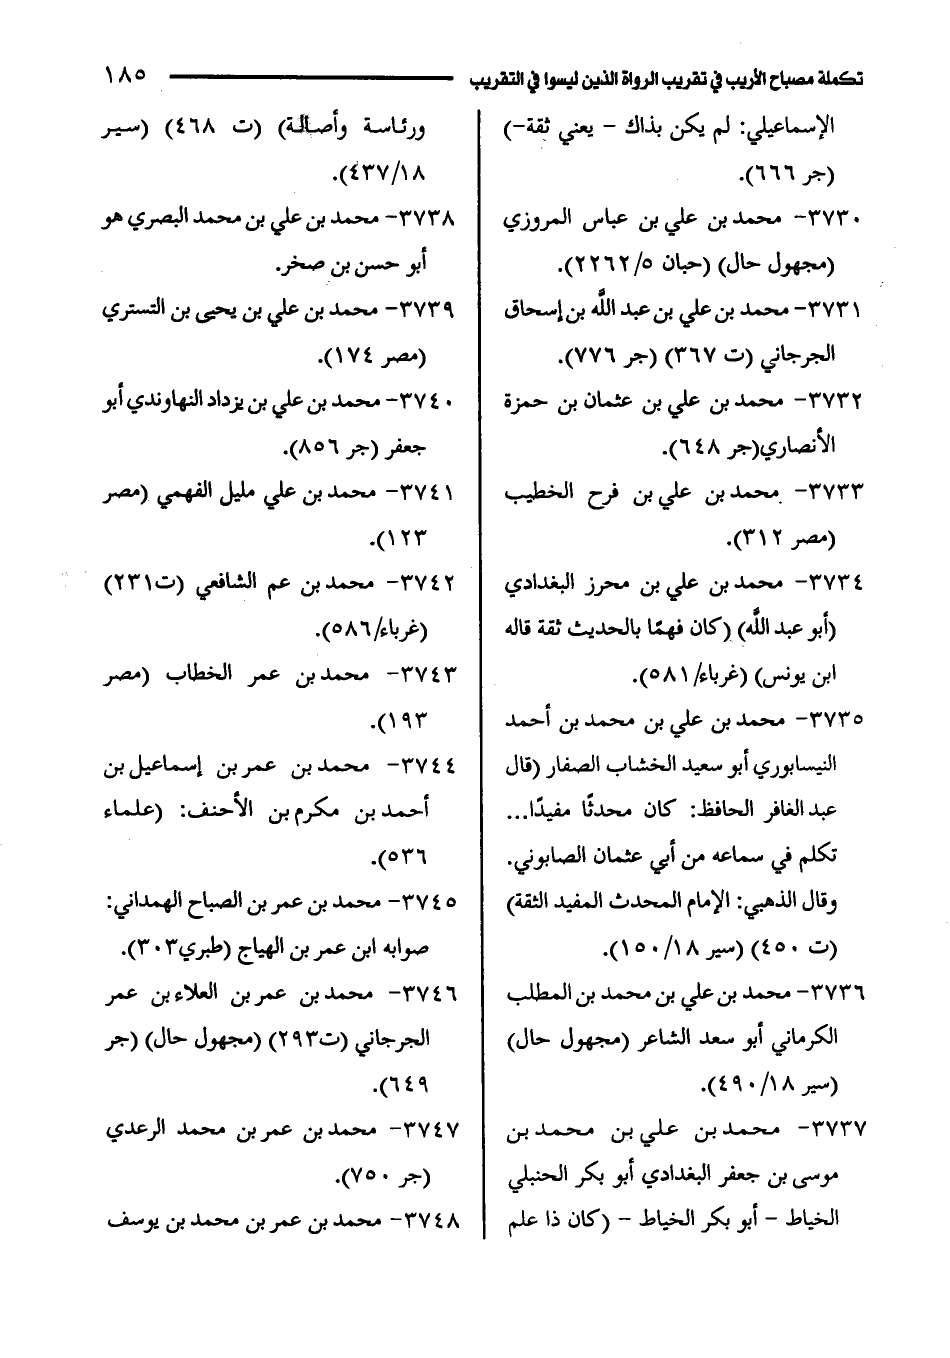 تكملة مصباح الأريب في تقريب الرواة الذين ليسوا في التقريب ١٨٥
الإسماعيلي: لم يكن بذاك - يعني ثقة-)
(جر ٦٦٦).
٣٧٣٠- محمد بن علي بن عباس المروزي
(مجهول حال) (حبان ٢٢٦٢/٥).
٣٧٣١- محمد بن علي بن عبد الله بن إسحاق
الجرجاني (ت ٣٦٧) (جر ٧٧٦).
٣٧٣٢- محمد بن علي بن عثمان بن حمزة
الأنصاري(جر ٦٤٨).
٣٧٣٣- محمد بن علي بن فرح الخطيب
(مصر ٣١٢).
٣٧٣٤- محمد بن علي بن محرز البغدادي
(أبو عبد الله) (كان فهمًا بالحديث ثقة قاله
ابن يونس) (غرباء/٥٨١).
٣٧٣٥- محمد بن علي بن محمد بن أحمد
النيسابوري أبو سعيد الخشاب الصفار (قال
عبد الغافر الحافظ: كان محدثًا مفيدًا...
تكلم في سماعه من أبي عثمان الصابوني.
وقال الذهبي: الإمام المحدث المفيد الثقة)
(ت ٤٥٠) (سير ١٥٠/١٨).
٣٧٣٦- محمد بن علي بن محمد بن المطلب
الكرماني أبو سعد الشاعر (مجهول حال)
(سير ٤٩٠/١٨).
٣٧٣٧- محمد بن علي بن محمد بن
موسى بن جعفر البغدادي أبو بكر الحنبلي
الخياط - أبو بكر الخياط - (كان ذا علم
ورئاسة وأصالة) (ت ٤٦٨) (سير
٤٣٧/١٨).
٣٧٣٨- محمد بن علي بن محمد البصري هو
أبو حسن بن صخر.
٣٧٣٩- محمد بن علي بن يحيى بن التستري
(مصر ١٧٤).
٣٧٤٠- محمد بن علي بن يزداد النهاوندي أبو
جعفر (جر ٨٥٦).
٣٧٤١- محمد بن علي مليل الفهمي (مصر
١٢٣).
٣٧٤٢- محمد بن عم الشافعي (ت٢٣١)
(غرباء/٥٨٦).
٣٧٤٣- محمد بن عمر الخطاب (مصر
١٩٣).
٣٧٤٤- محمد بن عمر بن إسماعيل بن
أحمد بن مكرم بن الأحنف: (علماء
٥٣٦).
٣٧٤٥- محمد بن عمر بن الصباح الهمداني:
صوابه ابن عمر بن الهياج (طبري٣٠٣).
٣٧٤٦- محمد بن عمر بن العلاء بن عمر
الجرجاني (ت٢٩٣) (مجهول حال) (جر
٦٤٩).
٣٧٤٧- محمد بن عمر بن محمد الرعدي
(جر ٧٥٠).
٣٧٤٨- محمد بن عمر بن محمد بن يوسف